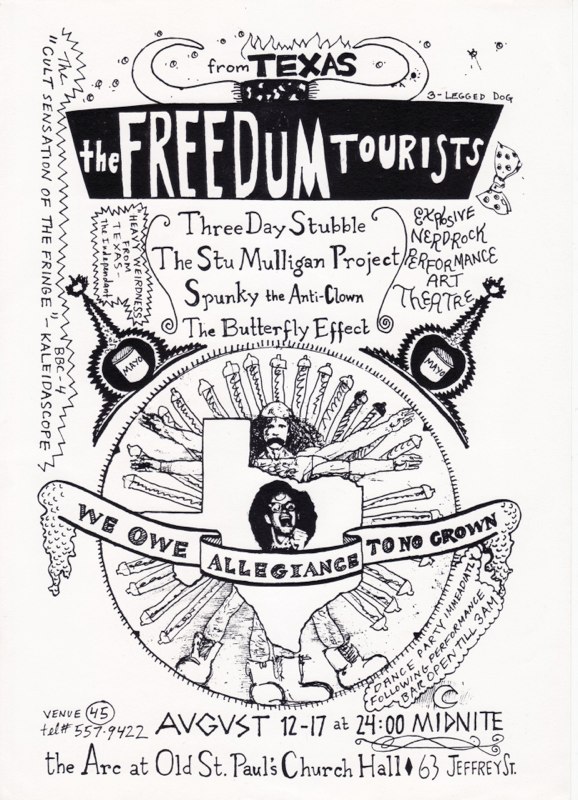 from TEXAS
3-LEGGED DOG
the FREEDUM TOURISTS
The
"CULT SENSATION OF THE FRINGE" - KALEIDASCOPE
BBC-4
"HEAVY WEIRDNESS
FROM
TEXAS -
The Independant
Three Day Stubble
The Stu Mulligan Project
Spunky the Anti-Clown
The Butterfly Effect
EXPLOSIVE
NERDROCK
PERFORMANCE
ART
THEATRE
MAYO
MAYO
WE OWE ALLEGIANCE TO NO CROWN
DANCE PARTY IMMEADIATLY
FOLLOWING PERFORMANCE
BAR OPEN TILL 3AM
VENUE 45
tel# 557-9422
AUGUST 12-17 at 24:00 MIDNITE
the Arc at Old St. Paul's Church Hall ♦ 63 JEFFREY ST.